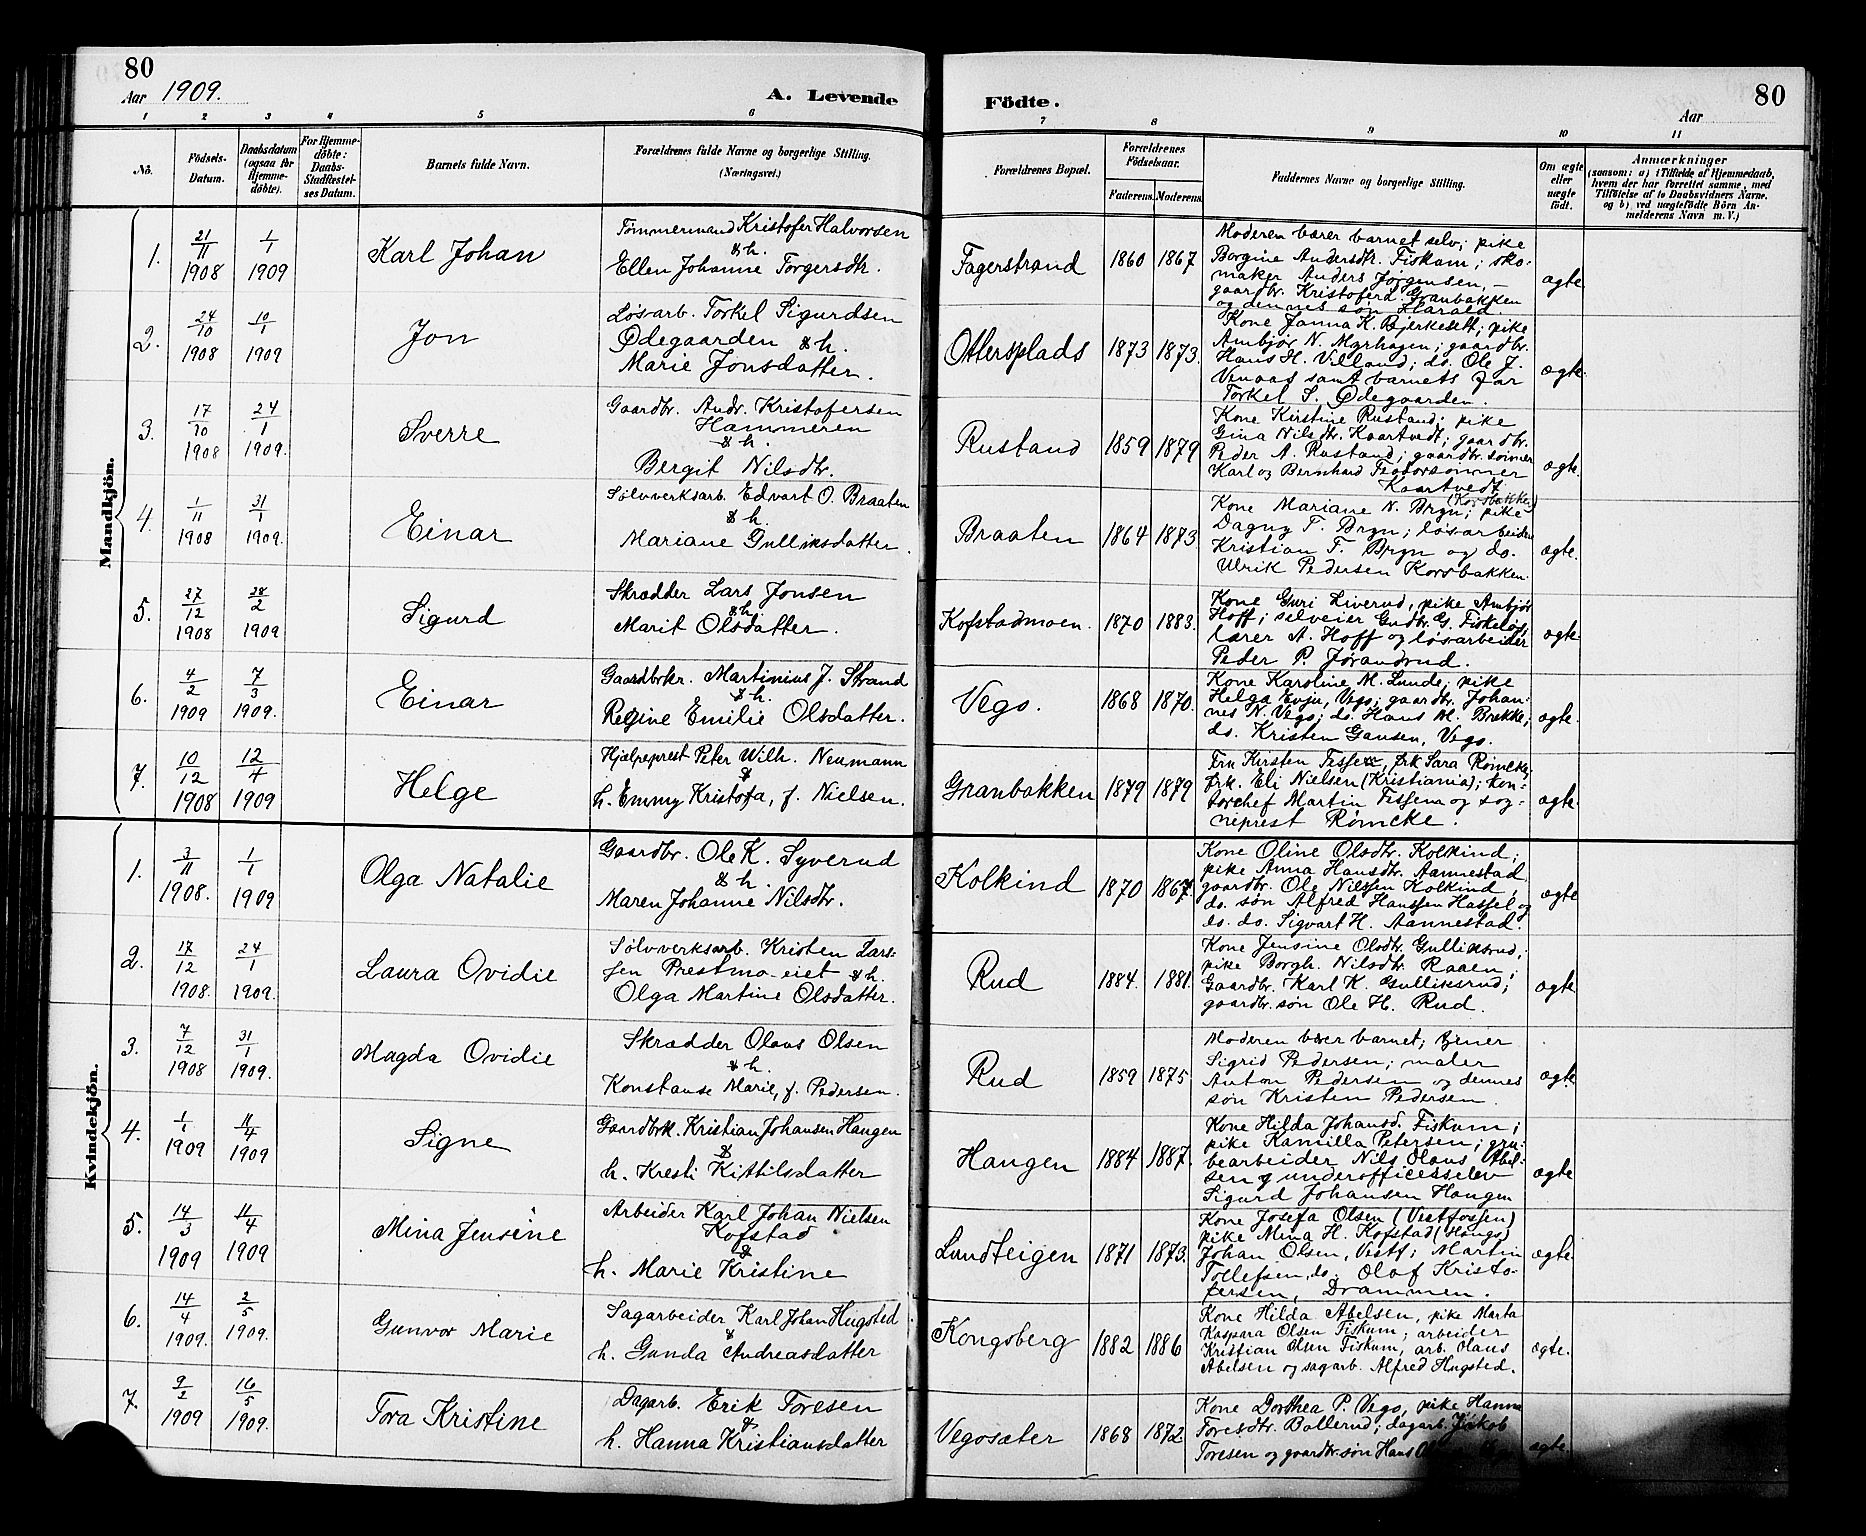 80
Aar 1909.
A. Levende
Födte.
Aar
80
1 2 3 4 5 6 7 8 9 10 11
No.
Födsels-Datum.
Daabsdatum (ogsaa for Hjemme-döbte).
For Hjemme-döbte: Daabs-Stadfæstel-ses Datum.
Barnets fulde Navn.
Forældrenes fulde Navne og borgerlige Stilling. (Næringsvei.)
Forældrenes Bopæl.
Forældrenes Födselsaar.
Faderens. Moderens.
Faddernes Navne og borgerlige Stilling.
Om ægte eller uægte födt.
Anmærkninger
(saasom: a) i Tilfælde af Hjemmedaab, hvem der har forrettet samme, med Tilföielse af to Daabsvidners Navne. og b) ved uægtefödte Börn An-melderens Navn m. V.)
Mandkjön.
1. 21/11 1908 1/1 1909 Karl Johan
Tømmermand Kristofer Halvorsen
& h.
Ellen Johanne Torgersdtr.
Fagerstrand 1860 1867
Moderen bærer barnet selv; pike
Borgine Andersdtr. Fiskum; sko-
maker Anders Jørgensen,
gaardbr. Kristoferd. Granbakken
og dennes søn Harald
ægte
2. 24/10 1908 10/1 1909 Jon
Løsarb. Torkel Sigurdsen
Ødegaarden & h.
Marie Jonsdatter.
Otlersplads 1873 1873.
Kone Janna K. Bjerkesett; pike
Ambjør N. Myrhagen; gaardbr.
Hans H. Villand; do. Ole J.
Venaas samt barnets far
Torkel S. Ødegaarden.
ægte.
3. 17/10 1908 24/1 1909. Sverre
Gaardbr. Andr. Kristofersen
Hammeren
& h.
Bergit Nilsdtr.
Rustand 1859 1879
Kone Kirstine Rustand; pike
Gina Nilsdtr. Kaartvedt; gaardbr.
Peder A. Rustand; gaardbr. sønner
Karl og Bernhard Teodorsønner
Kaartvedt
ægte.
4. 1/11 1908 31/1 1909. Einar
Sølvverksarb. Edvart O. Braaten
& h.
Mariane Gulliksdatter.
Braaten 1864 1873
Kone Mariane N. Bryn; (Korsbakke) pike
Dagny T. Bryn; løsarbeider
Kristian T. Bryn og do.
Ulrik Pedersen Korsbakken.
ægte.
5. 27/12 1908 28/2 1909 Sigurd
Skrædder Lars Jonsen
& h.
Marit Olsdatter.
Kofstadmoen. 1870 1883.
Kone Guri Liverud, pike Ambjør
Hoff; selveier Gudbr. G. Fiskeløs,
lærer A. Hoff og løsarbeider
Peder P. Jørandrud.
ægte
6. 4/2 1909 7/3 1909. Einar
Gaardbrkr. Martinius J. Strand
& h.
Regine Emilie Olsdatter.
Vego. 1868 1870.
Kone Karoline M. Lunde; pike
Helga Evju, Vego; gaardbr. Johan-
nes N. Vego; do. Hans M. Brekke,
do. Kristen Gausen, Vego.
ægte.
7. 10/12 1908 12/4 1909 Helge
Hjælpeprest Peter Wilh. Neumann
&
h. Emmy Kristofa, f. Nielsen.
Granbakken 1879 1879
Fru Kirsten Tessem, frk Sara Rømcke,
frk. Eli Nielsen (Kristiania); kon-
torchef Martin Tessem og sog-
neprest Rømcke.
ægte.
Kvindekjön.
1. 3/11 1908. 1/1 1909 Olga Natalie
Gaardbr. Ole K. Syverud
& h.
Maren Johanne Nilsdtr.
Kolkind 1870 1867.
Kone Oline Olsdtr. Kolkind;
pike Anna Hansdtr. Aannestad
gaardbr. Ole Nilssen Kolkind,
do. søn Alfred Hanssen Hassel og
do. do. Sigvart H. Aannestad.
ægte
2. 17/12 1908. 24/1 1909. Laura Ovidie
Sølvverksarb. Kristen Lars-
sen Prestmo-eiet & h.
Olga Martine Olsdatter.
Rud 1884. 1881.
Kone Jensine Olsdtr. Gulliksrud;
pike Borgh. Nilsdtr. Raaen;
Gaardbr. Karl K. Gulliksrud;
gaardbr. søn Ole H. Rud.
ægte.
3. 7/12 1908 31/1 1909. Magda Ovidie
Skrædder Olaus Olsen
& h.
Konstanse Marie, f. Pedersen.
Rud 1859 1875
Moderen bær barnet; tjener
Sigrid Pedersen; maler
Anton Pedersen og dennes
søn Kristen Pedersen.
ægte
4. 1/1 1909 11/4 1909 Signe
Gaardbrk. Kristian Johansen Haugen
&
h. Kresti Kittilsdatter
Haugen 1884 1887.
Kone Hilda Johansd. Fiskum;
pike Kamilla Petersen; gru-
bearbeider Nils Olaus Abel-
sen & underofficerselev
Sigurd Johansen Haugen
ægte
5. 14/3 1909 11/4 1909 Mina Jensine
Arbeider Karl Johan Nielsen
Kofstad
&
h. Marie Kristine
Lundteigen 1871 1873.
Kone Josefa Olsen (Vestfossen)
pike Mina H. Kofstad (Haugs)
Johan Olsen, Vestf; Martin
Tollefsen, do. Olaf Kristo-
fersen, Drammen.
ægte
6. 14/4 1909. 2/5 1909. Gunvor Marie
Sagarbeider Karl Johan Hugsted
&
h. Gunda Andreasdatter
Kongsberg 1882 1886
Kone Hilda Abelsen, pike Marta
Kaspara Olsen Fiskum; arbeider
Kristian Olsen Fiskum, arb. Olaus
Abelsen og sagarb. Alfred Hugsted.
ægte.
7. 9/2 1909 16/5 1909. Tora Kristine
Dagarb. Erik Toresen
&
h. Hanna Kristiansdatter
Vegosæter 1868 1872.
Kone Dorthea P. Vego, pike Hanna
Toresdtr. Bollerud; dagarb. Jakob
Toresen og gaardbr. søn Hans
ægte.